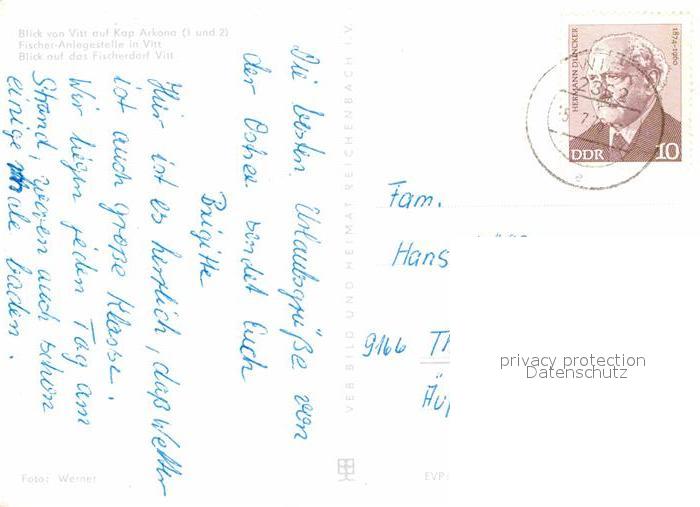 Blick von Vitt auf Kap Arkona (1 und 2)
Fischer-Anlegestelle in Vitt
Blick auf das Fischerdorf Vitt
Die besten Urlaubsgrüße von
der Ostsee sendet Euch
Brigitte
Hier ist es herrlich, daß Wetter
ist auch große Klasse.
Wir liegen jeden Tag am
Strand, waren auch schon
einige baden.
Foto: Werner
VEB BILD UND HEIMAT REICHENBACH I.V.
EVP:
HERMANN DUNCKER
1874-1960
DDR 10
Fam.
Hans
9166 Th
privacy protection
Datenschutz